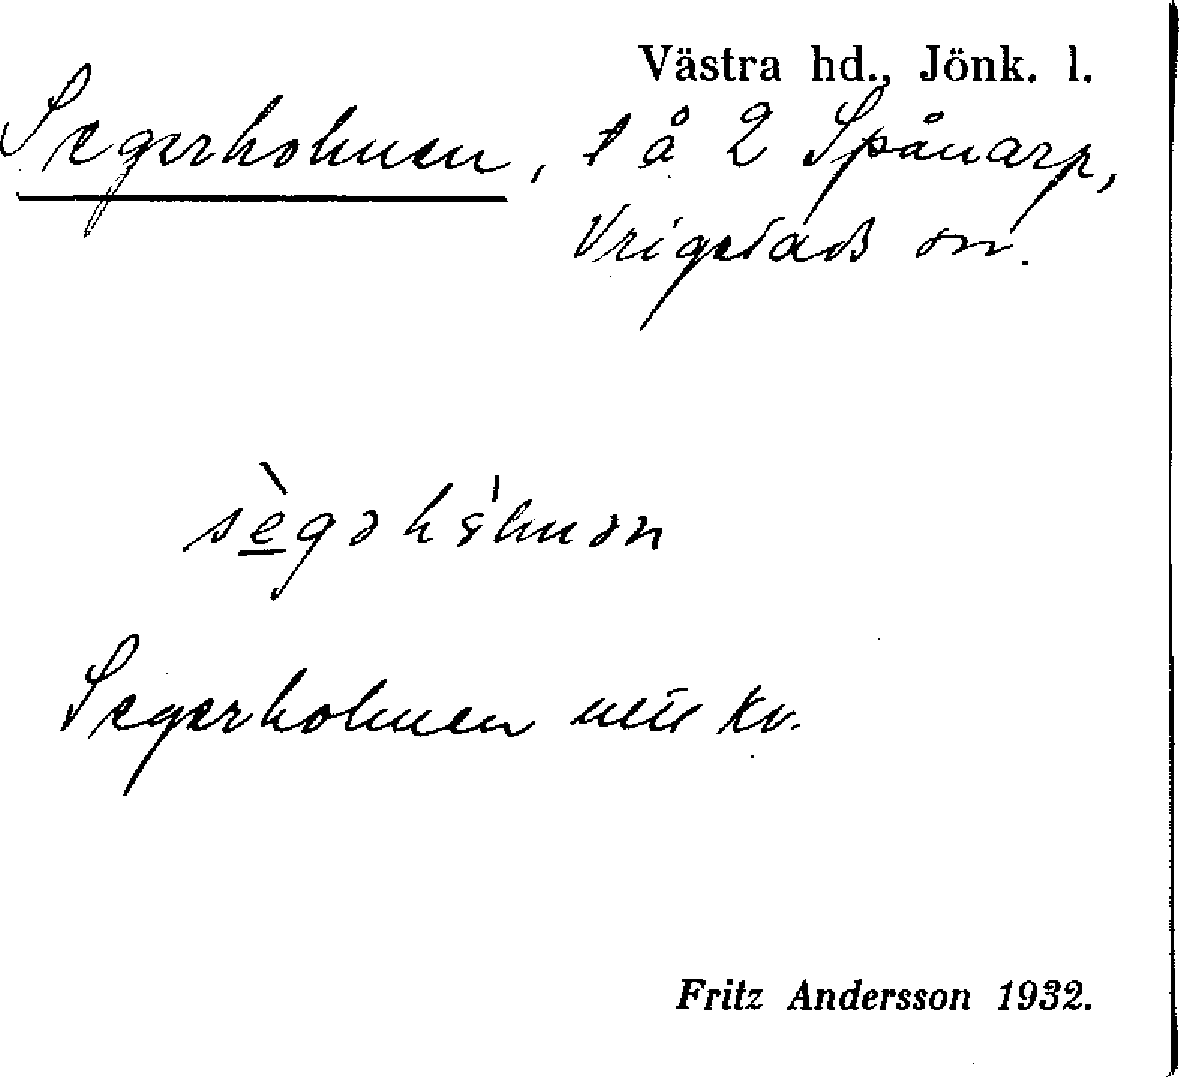 Västra hd., Jönk. l.
Segerholmen, t å 2 Spånarp,
Vrigstads sn.
sègəhólmən
Segerholmen utö kv.
Fritz Andersson 1932.